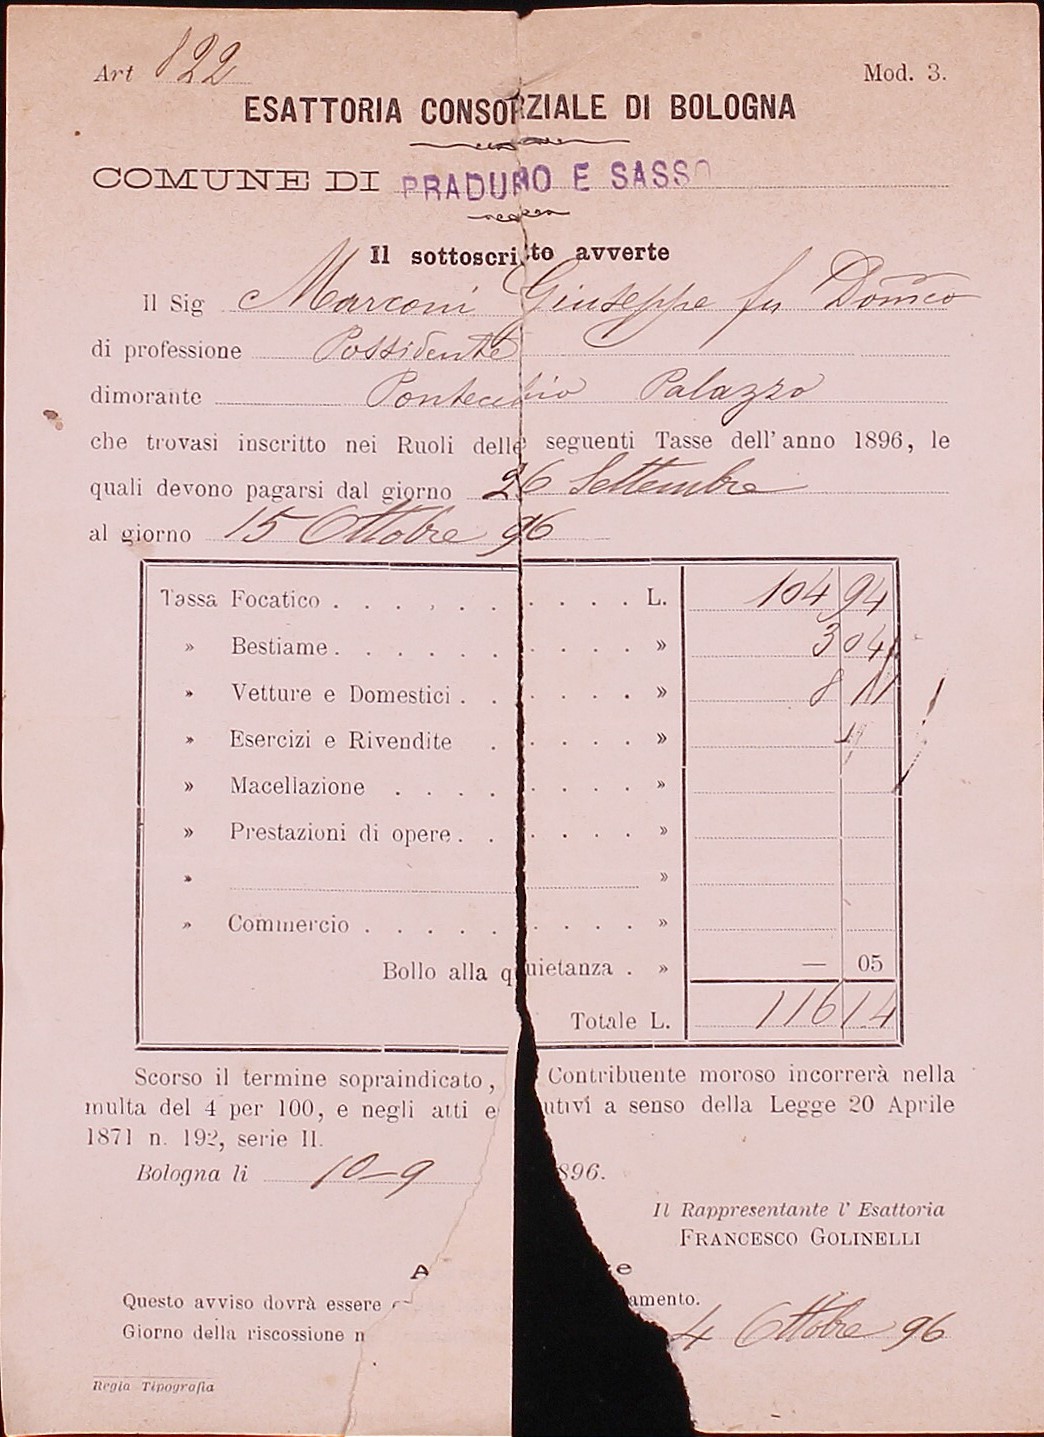 Art 822
Mod. 3.
ESATTORIA CONSORZIALE DI BOLOGNA
COMUNE DI PRADURO E SASSO
Il sottoscritto avverte
il Sig Marconi Giuseppe fu Domco
di professione Possidente
dimorante Pontecchio Palazzo
che trovasi inscritto nei Ruoli delle seguenti Tasse dell'anno 1896, le
quali devono pagarsi dal giorno 26 Settembre
al giorno 15 Ottobre 96
Tassa Focatico . . . . . . . . . . L. 104 94
» Bestiame . . . . . . . . . . » 3 04
» Vetture e Domestici . . . . . . » 8 11
» Esercizi e Rivendite . . . . . »
» Macellazione . . . . . . . . »
» Prestazioni di opere . . . . . . »
» »
» Commercio . . . . . . . . . »
Bollo alla quietanza . » — 05
Totale L. 116 14
Scorso il termine sopraindicato, Contribuente moroso incorrerà nella
multa del 4 per 100, e negli atti e utivi a senso della Legge 20 Aprile
1871 n. 192, serie II.
Bologna li 10-9 896.
Il Rappresentante l' Esattoria
FRANCESCO GOLINELLI
A e
Questo avviso dovrà essere amento.
Giorno della riscossione n 4 Ottobre 96
Regia Tipografia